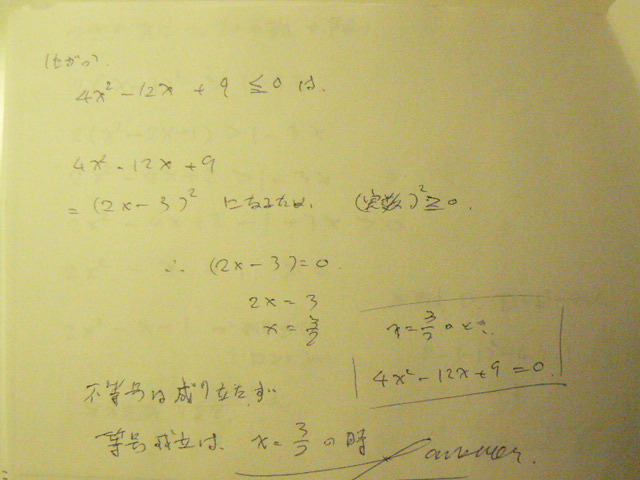 4x² - 12x + 9 ≦ 0 は、
4x² - 12x + 9
= (2x - 3)² になるため、 (実数)² ≧ 0.
∴ (2x - 3) = 0.
2x = 3
x = 3/2
x = 3/2 のとき、
4x² - 12x + 9 = 0.
不等号は成り立たず
等号成立は、 x = 3/2 の時
answer.